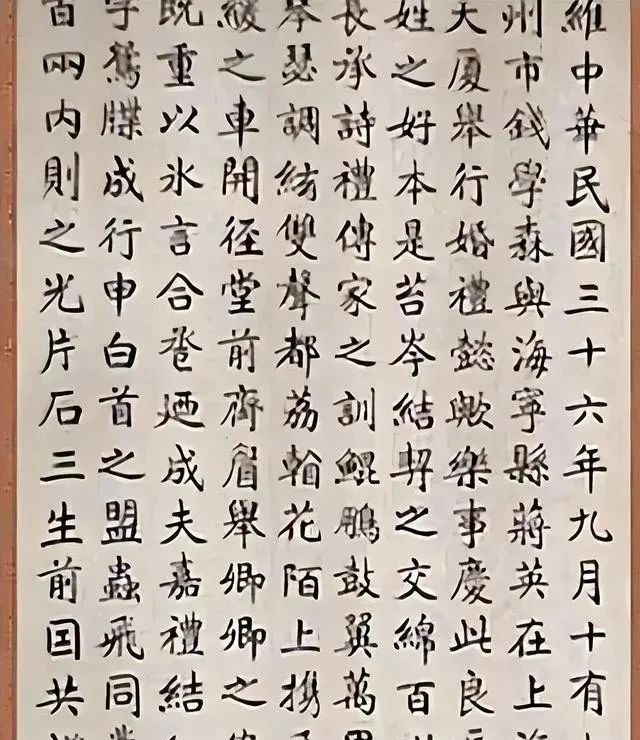 維中華民國三十六年九月十有
州市錢學森與海寧縣蔣英在上海
大厦舉行婚禮懿歟樂事慶此良
姓之好本是苔岑結契之交綿百
長承詩禮傳家之訓鯤鵬鼓翼萬里
琴瑟調絃雙聲都荔翰花陌上携
緩之車開徑堂前齊眉舉卿卿之
既重以氷言合卺廼成夫嘉禮結
字鴛牒成行申白首之盟蟲飛同
百兩內則之光片石三生前因共